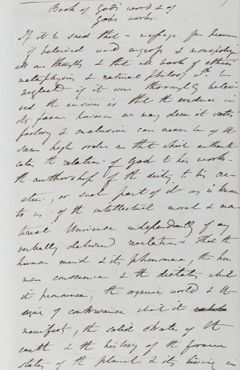 Book of God's word & of
God's works.
If it be said that a message from heaven
if believed would engross & monopolize
all our thoughts & that all works of ethics
metaphysics & natural philosophy to be
neglected if it were thoroughly believ-
ed the answer is that the evidence in
its favor however we may deem it satis-
factory & conclusive can never be of the
same high order as that which authenti-
cates the relation of God to his works
the authorship of the deity to his cre-
ation, or such part of it as is known
to us of the intellectual moral & ma-
terial Universe independently of any
verbally delivered revelation. That the
human mind & its phenomena, the hu-
man conscience & the dictates which
it pronounces, the organic world & the
signs of contrivance which it
manifests, the solid strata of the
earth & the history of the former
states of the planet & its living in